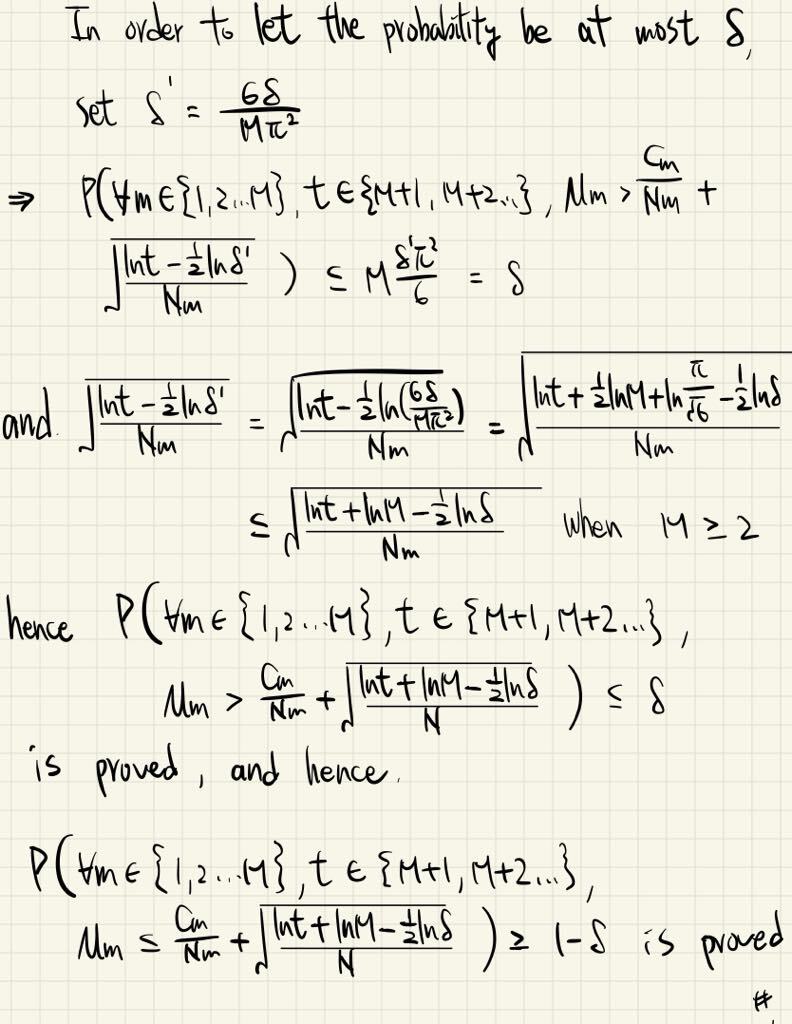 In order to let the probability be at most δ,
set δ' = 6δ/(Mπ²)
⇒ P(∀m∈{1,2...M}, t∈{M+1, M+2..}, μm > Cm/Nm +
√((ln t - ½ ln δ')/Nm) ) ≤ M δ'π²/6 = δ
and. √((ln t - ½ ln δ')/Nm) = √((ln t - ½ ln(6δ/(Mπ²)))/Nm) = √((ln t + ½ ln M + ln π/√6 - ½ ln δ)/Nm)
≤ √((ln t + ln M - ½ ln δ)/Nm) when M ≥ 2
hence P(∀m ∈ {1,2...M}, t ∈ {M+1, M+2...},
μm > Cm/Nm + √((ln t + ln M - ½ ln δ)/N) ) ≤ δ
is proved, and hence.
P(∀m ∈ {1,2...M}, t ∈ {M+1, M+2...},
μm ≤ Cm/Nm + √((ln t + ln M - ½ ln δ)/N) ) ≥ 1-δ is proved
#